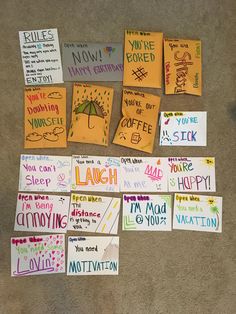 RULES
ENJOY!
Open when
NOW!
HAPPY BIRTHDAY
Open When...
YOU'RE
BORED
Open When
You are
Stressed
Open when...
You're
Doubting
YOURSELF
Open when...
Open When
YOU'RE
OUT OF
COFFEE
Open When...
YOU'RE
SICK
Open When...
You can't
Sleep
Open When...
You need a
LAUGH
Open When...
You're
Mad
At me
Open When...
You're
HAPPY!
Open When
I'm Being
annoying
Open When...
The
distance
is getting to
you
Open When...
I'm Mad
@ YOU
Open When
You need a
VACATION
Open When...
You need some
Lovin'
Open When...
You need
MOTIVATION